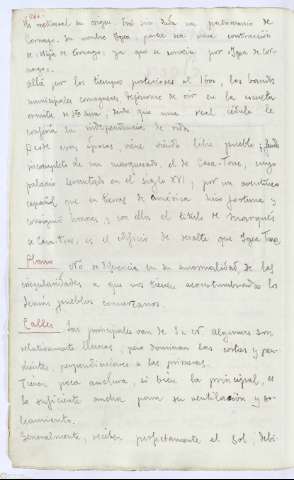 Es medieval su origen. Era sin duda un patrimonio de
Cornago. Su nombre Igea, parece ser una contracción
de "Hija de Cornago" ya que se conocía por Igea de Cor-
nago.
Allá por los tiempos posteriores al 1600, las bandos
municipales consiguieron dejarse de oír en la escueta
ermita de Sta Ana, desde que una real cédula le
confería la independencia de villa.
Desde esas épocas, viene siendo libre pueblo y feudo
incompleto de un marquesado, el de Casa-Torre, cuyo
palacio levantado en el siglo XVI, por un aventurero
español que en tierras de América hizo fortuna y
consiguió honores y con ellos el título de Marqués
de Casa-Torre, es el edificio de realce que Igea tiene.
Plano No se diferencia en su anormalidad de las
irregularidades a que nos tienen acostumbrados los
demás pueblos comarcanos.
Calles Las principales van de S a N. Algunas son
relativamente llanas, pero dominan las cortas y pen-
dientes, perpendiculares a las primeras.
Tienen poca anchura, si bien la principal, es
lo suficiente ancha para su ventilación y so-
leamiento.
Generalmente, reciben perfectamente el Sol, debi-